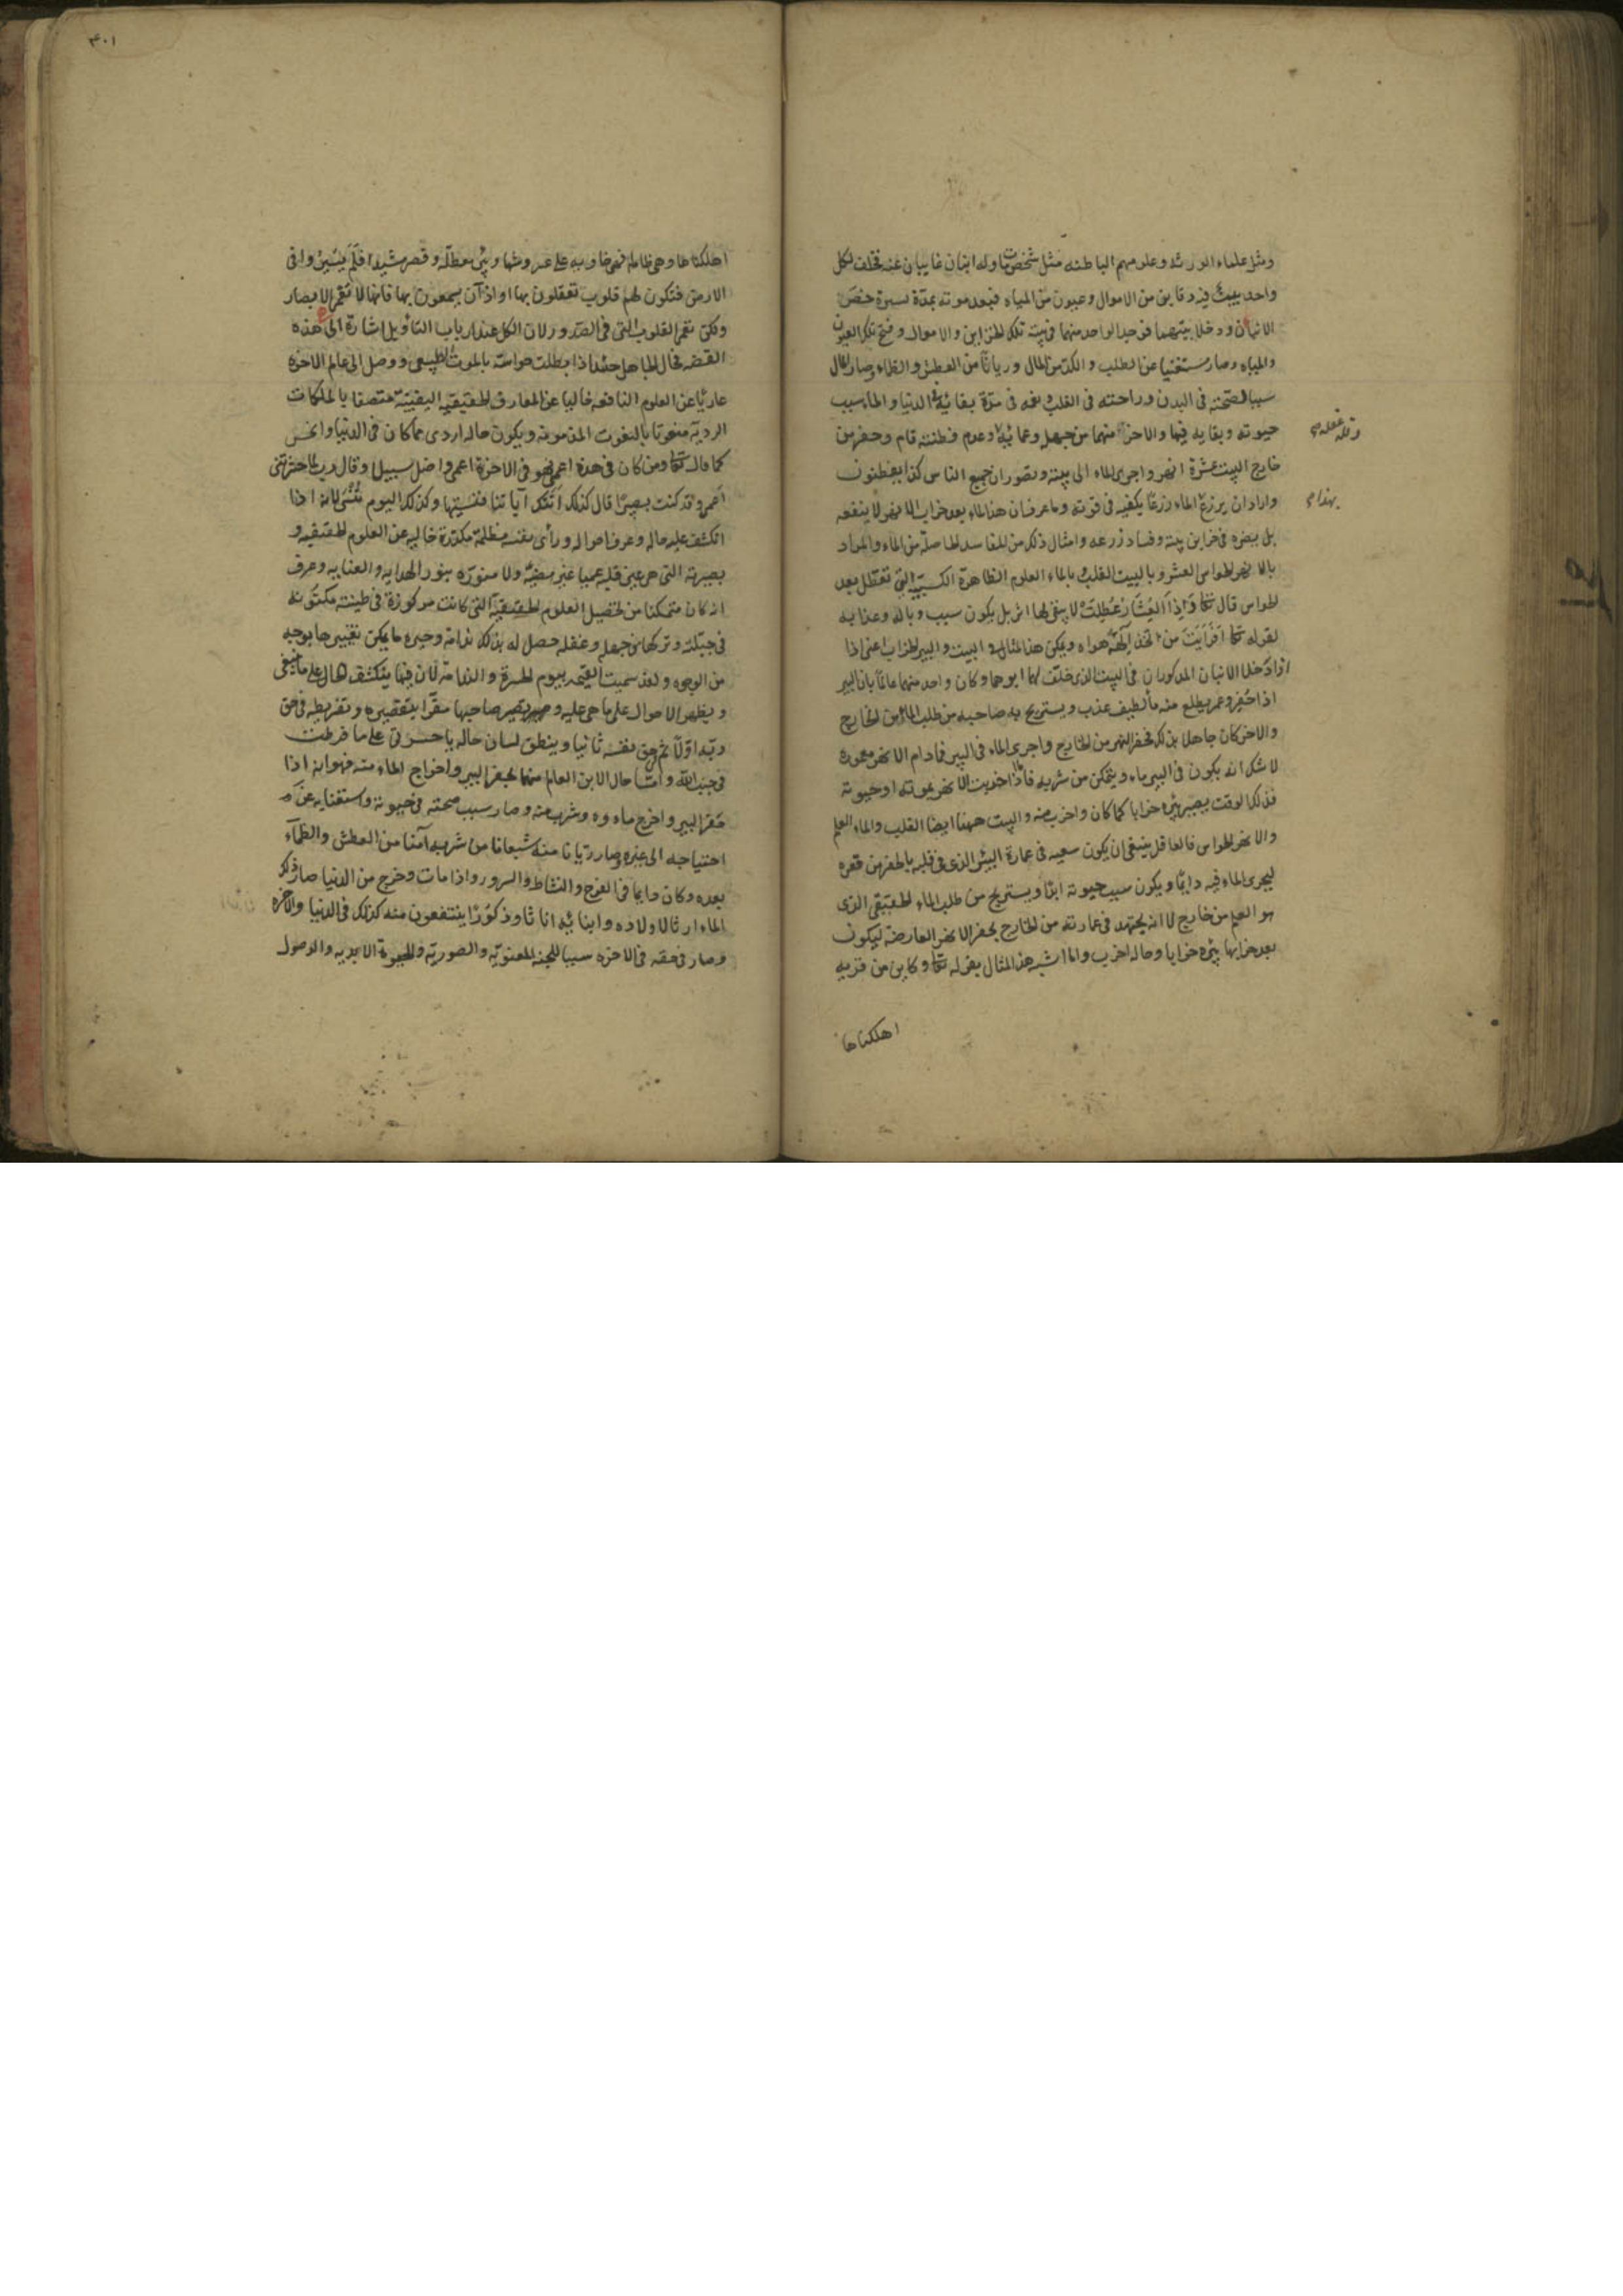 ومثل علماء الورثه وعلومهم الباطنه مثل شخص مات وله ابنان غايبان عنه فخلف لكل
واحد بيت فيه دفاين من الاموال وعيون من المياه فبعد موته بمدة يسيرة حضر
الابنان ودخلا بيتهما فوجد الواحد منهما في بيته تلك الخزاين والاموال وفتح تلك العيون
والمياه وصار مستغنيا عن الطلب والكد من المال وريانا من العطش والظماء وصار المال
سببا لصحته في البدن وراحته في القلب في مدة بقائه في الدنيا والماء سبب
حيوته وبقايه فيها والاخر منهما من جهله وعمائه وعدم فطنته قام وحفر من
وقلة عقله
خارج البيت عشرة انهر واجرى الماء الى بيته وتصور ان جميع الناس كذا يفطنون
واراد ان يزرع الماء زرعا يكفيه في قوته وما عرف ان هذا الماء بعد خراب الانهر لا ينفعه
بهذا
بل يضره في خزاين بيته وفساد زرعه وامثال ذلك من المفاسد الحاصلة من الماء والمراد
بالانهر الحواس العشر وبالبيت القلب وبالماء العلوم الظاهرة الكسبية التي تعطل بعد
الحواس قال تعالى وَاِذَا العِشَارُ عُطِّلَت لا يبقى لها اثر بل يكون سبب وباله وعذابه
لقوله تعالى اَفَرَاَيتَ من اتخذ اِلهَهُ هواه ويمكن هذا المثال في البيت والبير الخراب اعنى اذا
اذا دخلا الابنان المذكوران في البيت الذي خلف لهما ابوهما وكان واحد منهما عالما بان البير
اذا حُفر وعمر يطلع منه ماء لطيف عذب ويستريح به صاحبه من طلب الماء من الخارج
والاخر كان جاهلا بذلك فحفر النهر من الخارج واجرى الماء في البير فمادام الانهر معمورة
لاشك انه يكون في البير ماء ويتمكن من شربه فاذا خربت الانهر بموته او حيوته
فذلك الوقت يصير بيره خرابا كما كان واخرب منه والبيت ههنا ايضا القلب والماء العلم
والانهر الحواس فالعاقل ينبغى ان يكون سعيه في عمارة البئر الذي في قلبه بالحفر من قعره
ليجرى الماء فيه دايما ويكون سبب حيوته ابدا ويستريح من طلب الماء الحقيقى الذي
هو العلم من خارج لا انه يجتهد في عمارته من الخارج بحفر الانهر العارضة ليكون
بعد خرابها بيره خرابا وحاله اخرب والى اشير هذا المثال بقوله تعالى وكاين من قريه
اهلكناها
٣٠١
اهلكناها وهي ظالمه فهي خاويه على عروشها وبئر معطله وقصر مشيد افَلَم يَسيروا في
الارض فتكون لهم قلوب تعقلون بها او اذان يسمعون بها فانها لا تعمى الابصار
ولكن تعمى القلوب التي في الصدور لان الكل عند ارباب التاويل اشارة الى هذه
القصه فحال الجاهل حينئذ اذا بطلت حواسه بالموت الطبيعى ووصل الى عالم الاخره
عاريا عن العلوم النافعه خاليا عن المعارف الحقيقيه اليقينية متصفا بالملكات
الرديه منعوتا بالنعوت المذمومه ويكون حاله اردى مما كان في الدنيا واخس
كما قال تعالى ومن كان في هذه اعمى فهو في الاخرة اعمى واضل سبيلا وقال رب لم حشرتنى
اَعمى وقد كنت بصيرا قال كذلك اتتك اياتنا فنسيتها وكذلك اليوم تُنسَى لانه اذا
انكشف عليه حاله وعرف احواله وراى نفسه مظلمة مكدرة خاليه عن العلوم الحقيقيه و
بصيرته التي هي عين قلبه عميا غير مضيئه ولا منوره بنور الهدايه والعنايه وعرف
انه كان متمكنا من تحصيل العلوم الحقيقية التي كانت مركوزة في طينته مكنونه
في جبلته وتركها من جهله وغفله حصل له بذلك ندامة وحيره ما يمكن تغييرها بوجه
من الوجوه ولهذا سميت القيمه بيوم الحسرة والندامة لان فيها ينكشف الحال على ما ينبغى
ويظهر الاحوال على ما هي عليه ويصير صاحبها مقرا بتقصيره وتفريطه في حق
ربه اولا ثم في حق نفسه ثانيا وينطق لسان حاله يا حسرتى على ما فرطت
في جنب الله واما حال الابن العالم منهما بحفر البير واخراج الماء منه فهو انه اذا
حفر البير واخرج ماءوه وشرب منه وصار سبب صحته في حيوته واستغنايه عن
احتياجه الى غيره وصار ريانا منه شبعانا من شربه آمنا من العطش والظماء
بعده وكان دايما في الفرح والنشاط والسرور واذا مات وخرج من الدنيا صار ذلك
الماء ارثا لاولاده وابنائه اناثا وذكورا ينتفعون منه كذلك في الدنيا والاخره
وصار في حقه في الاخره سببا للجنه المعنويه والصوريه والحيوة الابديه والوصول